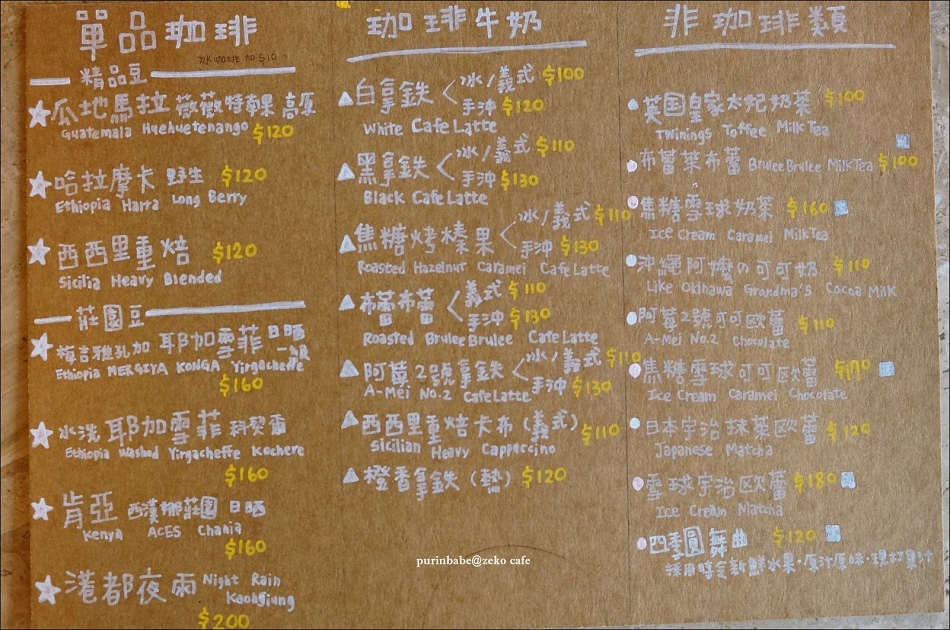 單品咖啡
冰咖啡加$10
精品豆
瓜地馬拉 薇薇特南果 高原
Guatemala Huehuetenango $120
哈拉摩卡 野生 $120
Ethiopia Harra Long Berry
西西里重焙 $120
Sicilia Heavy Blended
莊園豆
耶加雪菲日晒
一級
Ethiopia MERGITA KONGA Yirgacheffe
$160
水洗耶加雪菲 科契爾
Ethiopia Washed Yirgacheffe Kochere
$160
肯亞 西漢娜莊園 日晒
Kenya ACES Chania
$160
港都夜雨 Night Rain
Kaohsiung
$200
咖啡牛奶
白拿鐵 冰/義式 $100
手沖 $120
White Cafe Latte
黑拿鐵 冰/義式 $110
手沖 $130
Black Cafe Latte
焦糖烤榛果 冰/義式 $110
手沖 $130
Roasted Hazelnut Caramel Cafe Latte
布蕾布蕾 義式 $110
手沖 $130
Roasted Brulee Brulee Cafe Latte
阿莓2號拿鐵 冰/義式 $110
手沖 $130
A-Mei No.2 Cafe Latte
西西里重焙卡布(義式) $110
Sicilian Heavy Cappuccino
橙香拿鐵(熱) $120
非咖啡類
英国皇家太妃奶茶 $100
Twinings Toffee Milk Tea
布蕾萊布蕾 Brulee Brulee Milk Tea $100
焦糖雪球奶茶 $160
Ice Cream Caramel Milk Tea
沖繩阿嬤の可可奶 $110
Like Okinawa Grandma's Cocoa Milk
阿莓2號可可歐蕾 $110
A-Mei No.2 Chocolate
焦糖雪球可可歐蕾
Ice Cream Caramel Chocolate
日本宇治抹茶歐蕾 $120
Japanese Matcha
雪球宇治歐蕾 $180
Ice Cream Matcha
四季圓舞曲 $120
採用時令新鮮水果·原汁原味·現打果汁
purinbabe@zeko cafe